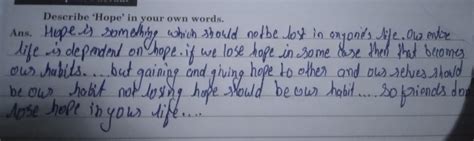 Describe 'Hope' in your own words.
Ans. Hope is something which should not be lost in anyone's life. Our entire
life is dependent on hope. if we lose hope in some case then that becomes
our habits.... but gaining and giving hope to other and our selves should
be our habit not losing hope should be our habit.... So friends don
lose hope in your life....